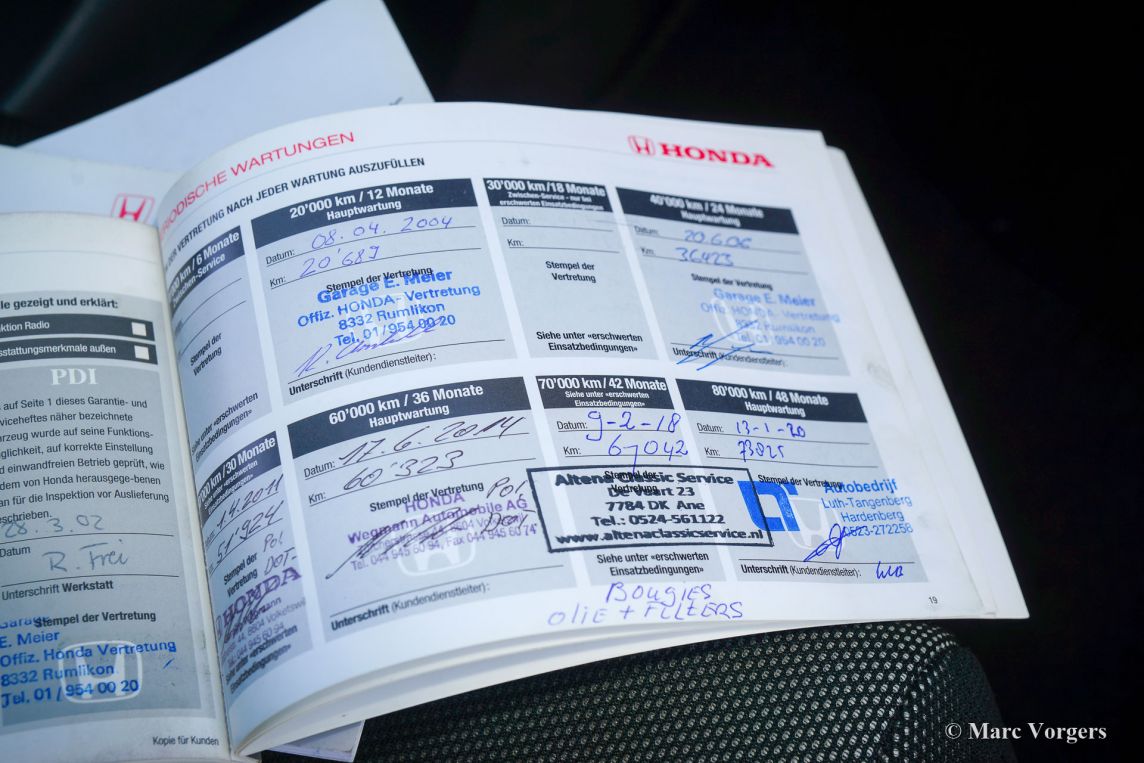 lle gezeigt und erklärt:
ktion Radio
sstattungsmerkmale außen
PDI
auf Seite 1 dieses Garantie- und
viceheftes näher bezeichnete
rzeug wurde auf seine Funktions-
glichkeit, auf korrekte Einstellung
einwandfreien Betrieb geprüft, wie
dem von Honda herausgege-benen
an für die Inspektion vor Auslieferung
schrieben.
28.3.02
Datum
R. Frei
Unterschrift Werkstatt
Stempel der Vertretung
E. Meier
Offiz. Honda Vertretung
8332 Rumlikon
Tel. 01 / 954 00 20
Kopie für Kunden
RIODISCHE WARTUNGEN
HONDA
DER VERTRETUNG NACH JEDER WARTUNG AUSZUFÜLLEN
000 km / 6 Monate
Zwischen-Service
Stempel der
Vertretung
Siehe unter «erschwerten
Einsatzbedingungen»
20'000 km / 12 Monate
Hauptwartung
Datum: 08.04.2004
Km: 20'689
Stempel der Vertretung
Garage E. Meier
Offiz. HONDA - Vertretung
8332 Rumlikon
Tel. 01/954 00 20
Unterschrift (Kundendienstleiter):
30'000 km/18 Monate
Zwischen-Service - nur bei
erschwerten Einsatzbedingungen
Datum:
Km:
Stempel der
Vertretung
Siehe unter «erschwerten
Einsatzbedingungen»
40'000 km / 24 Monate
Hauptwartung
Datum: 20.6.06
Km: 36423
Stempel der Vertretung
Garage E. Meier
Offiz. HONDA - Vertretung
8332 Rumlikon
Tel. 01 / 954 00 20
Unterschrift (Kundendienstleiter):
000 km / 30 Monate
.9.2011
51'924
Stempel der
Vertretung
HONDA
044 945 60 94
Siehe unter «erschwerten
Einsatzbedingungen»
60'000 km / 36 Monate
Hauptwartung
Datum: 17.6.2014
Km: 60'323
Stempel der Vertretung
HONDA
Wegmann Automobile AG
Tel. 044 945 60 94, Fax 044 945 60 74
Unterschrift (Kundendienstleiter):
70'000 km / 42 Monate
Siehe unter «erschwerten
Einsatzbedingungen»
Datum: 9-2-18
Km: 67042
Stempel der
Vertretung
Altena Classic Service
De Vaart 23
7784 DK Ane
Tel.: 0524-561122
www.altenaclassicservice.nl
Siehe unter «erschwerten
Einsatzbedingungen»
80'000 km / 48 Monate
Hauptwartung
Datum: 13-1-20
Km: 73025
Stempel der Vertretung
Autobedrijf
Luth-Tangenberg
Hardenberg
0523-272256
Unterschrift (Kundendienstleiter):
BOUGIES
OLIE + FILTERS
19
© Marc Vorgers